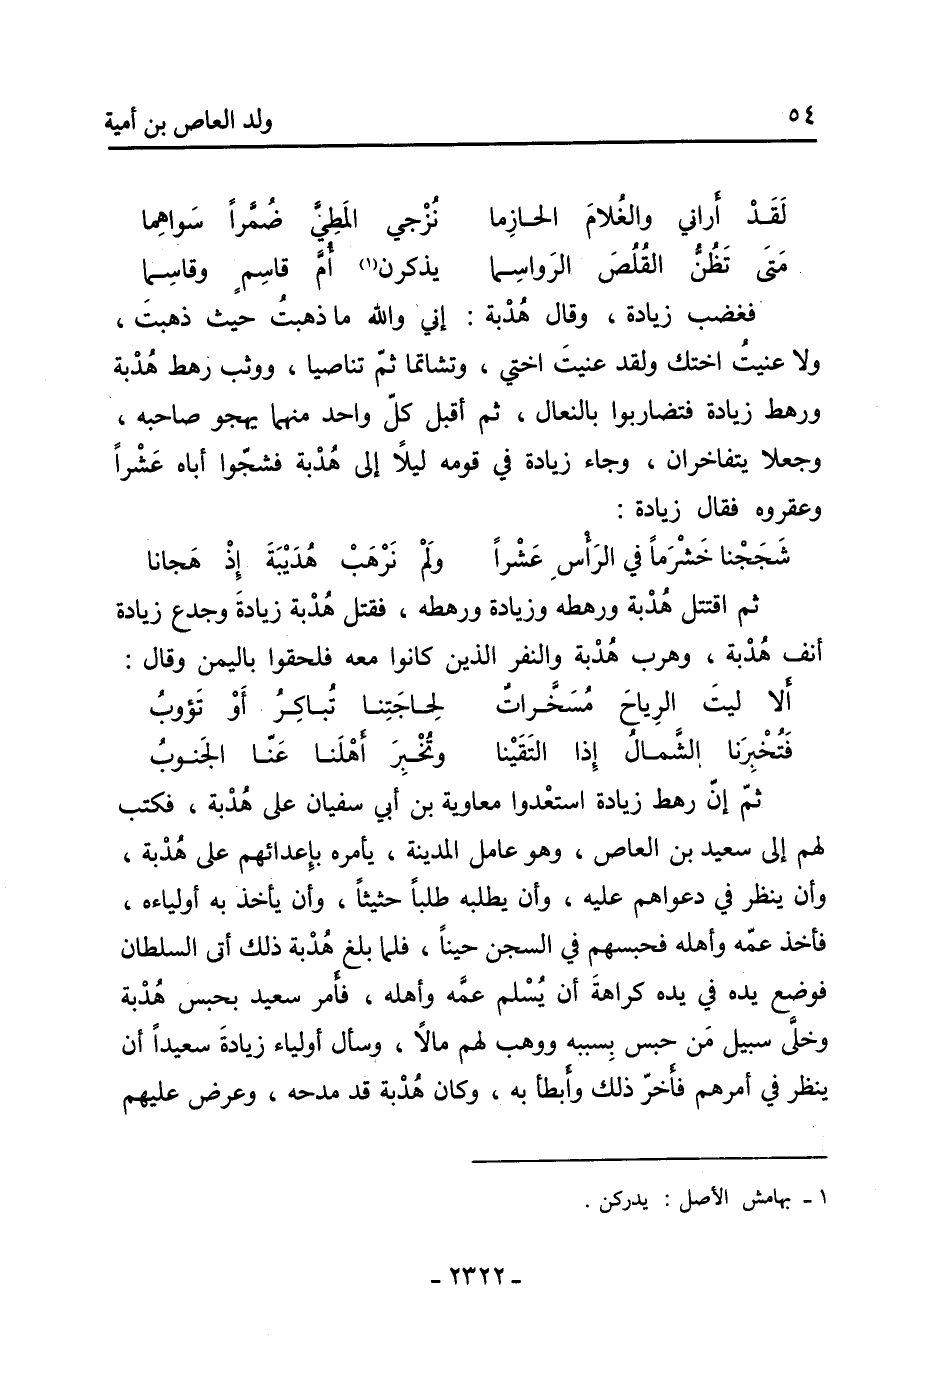 ٥٤ ولد العاص بن أمية
لَقَدْ أَراني والغُلامَ الحازِما نُزْجي المَطِيَّ ضُمَّراً سَواهِما
مَتَى تَظُنُّ القُلُصَ الرَواسِما يذكرن(١) أُمَّ قاسِمٍ وقاسِما
فغضب زيادة ، وقال هُدْبة : إني والله ما ذهبتُ حيث ذهبتَ ،
ولا عنيتُ اختك ولقد عنيتَ اختي ، وتشاتما ثمّ تناصيا ، ووثب رهط هُدْبة
ورهط زيادة فتضاربوا بالنعال ، ثم أقبل كلّ واحد منهما يهجو صاحبه ،
وجعلا يتفاخران ، وجاء زيادة في قومه ليلاً إلى هُدْبة فشجّوا أباه عَشْراً
وعقروه فقال زيادة :
شَجَجْنا خَشْرَماً في الرَأْسِ عَشْراً ولَمْ نَرْهَبْ هُدَيْبَةَ إِذْ هَجانا
ثم اقتتل هُدْبة ورهطه وزيادة ورهطه ، فقتل هُدْبة زيادةَ وجدع زيادة
أنف هُدْبة ، وهرب هُدْبة والنفر الذين كانوا معه فلحقوا باليمن وقال :
أَلا ليتَ الرِياحَ مُسَخَّراتٌ لِحاجَتِنا تُباكِرُ أَوْ تَؤوبُ
فَتُخْبِرَنا الشَّمالُ إِذا التَقَيْنا وتُخْبِرَ أَهْلَنا عَنّا الجَنوبُ
ثمّ إنّ رهط زيادة استعْدوا معاوية بن أبي سفيان على هُدْبة ، فكتب
لهم إلى سعيد بن العاص ، وهو عامل المدينة ، يأمره بإعدائهم على هُدْبة ،
وأن ينظر في دعواهم عليه ، وأن يطلبه طلباً حثيثاً ، وأن يأخذ به أولياءه ،
فأخذ عمّه وأهله فحبسهم في السجن حيناً ، فلما بلغ هُدْبة ذلك أتى السلطان
فوضع يده في يده كراهةَ أن يُسْلم عمَّه وأهله ، فأمر سعيد بحبس هُدْبة
وخلَّى سبيل مَن حبس بِسببه ووهب لهم مالاً ، وسأل أولياء زيادةَ سعيداً أن
ينظر في أمرهم فأخرّ ذلك وأبطأ به ، وكان هُدْبة قد مدحه ، وعرض عليهم
١ - بهامش الأصل : يدركن .
- ٢٣٢٢ -